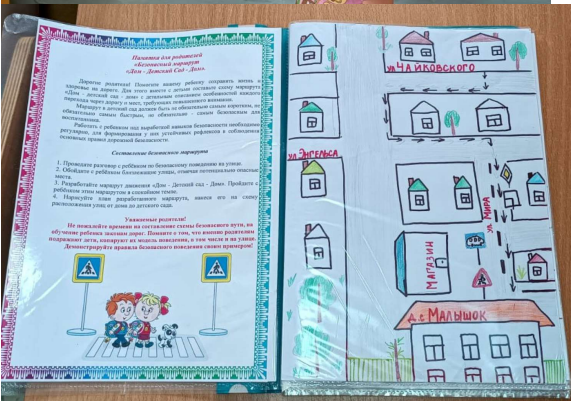 Памятка для родителей
«Безопасный маршрут
«Дом - Детский Сад - Дом».
Дорогие родители! Помогите вашему ребенку сохранить жизнь и
здоровье на дороге. Для этого вместе с детьми составьте схему маршрута
«Дом - детский сад - дом» с детальным описанием особенностей каждого
перехода через дорогу и мест, требующих повышенного внимания.
Маршрут в детский сад должен быть не обязательно самым коротким, не
обязательно самым быстрым, но обязательно - самым безопасным для
воспитанника.
Работать с ребенком над выработкой навыков безопасности необходимо
регулярно, для формирования у них устойчивых рефлексов в соблюдении
основных правил дорожной безопасности.
Составление безопасного маршрута
1. Проведите разговор с ребёнком по безопасному поведению на улице.
2. Обойдите с ребёнком близлежащие улицы, отмечая потенциально опасные
места.
3. Разработайте маршрут движения «Дом - Детский сад - Дом». Пройдите с
ребёнком этим маршрутом в спокойном темпе.
4. Нарисуйте план разработанного маршрута, нанеся его на схему
расположения улиц от дома до детского сада.
Уважаемые родители!
Не пожалейте времени на составление схемы безопасного пути, на
обучение ребенка законам дорог. Помните о том, что именно родителям
подражают дети, копируют их модель поведения, в том числе и на улице.
Демонстрируйте правила безопасного поведения своим примером!
ул. Чайковского
ул. Энгельса
ул. Мира
Магазин
д.с Малышок